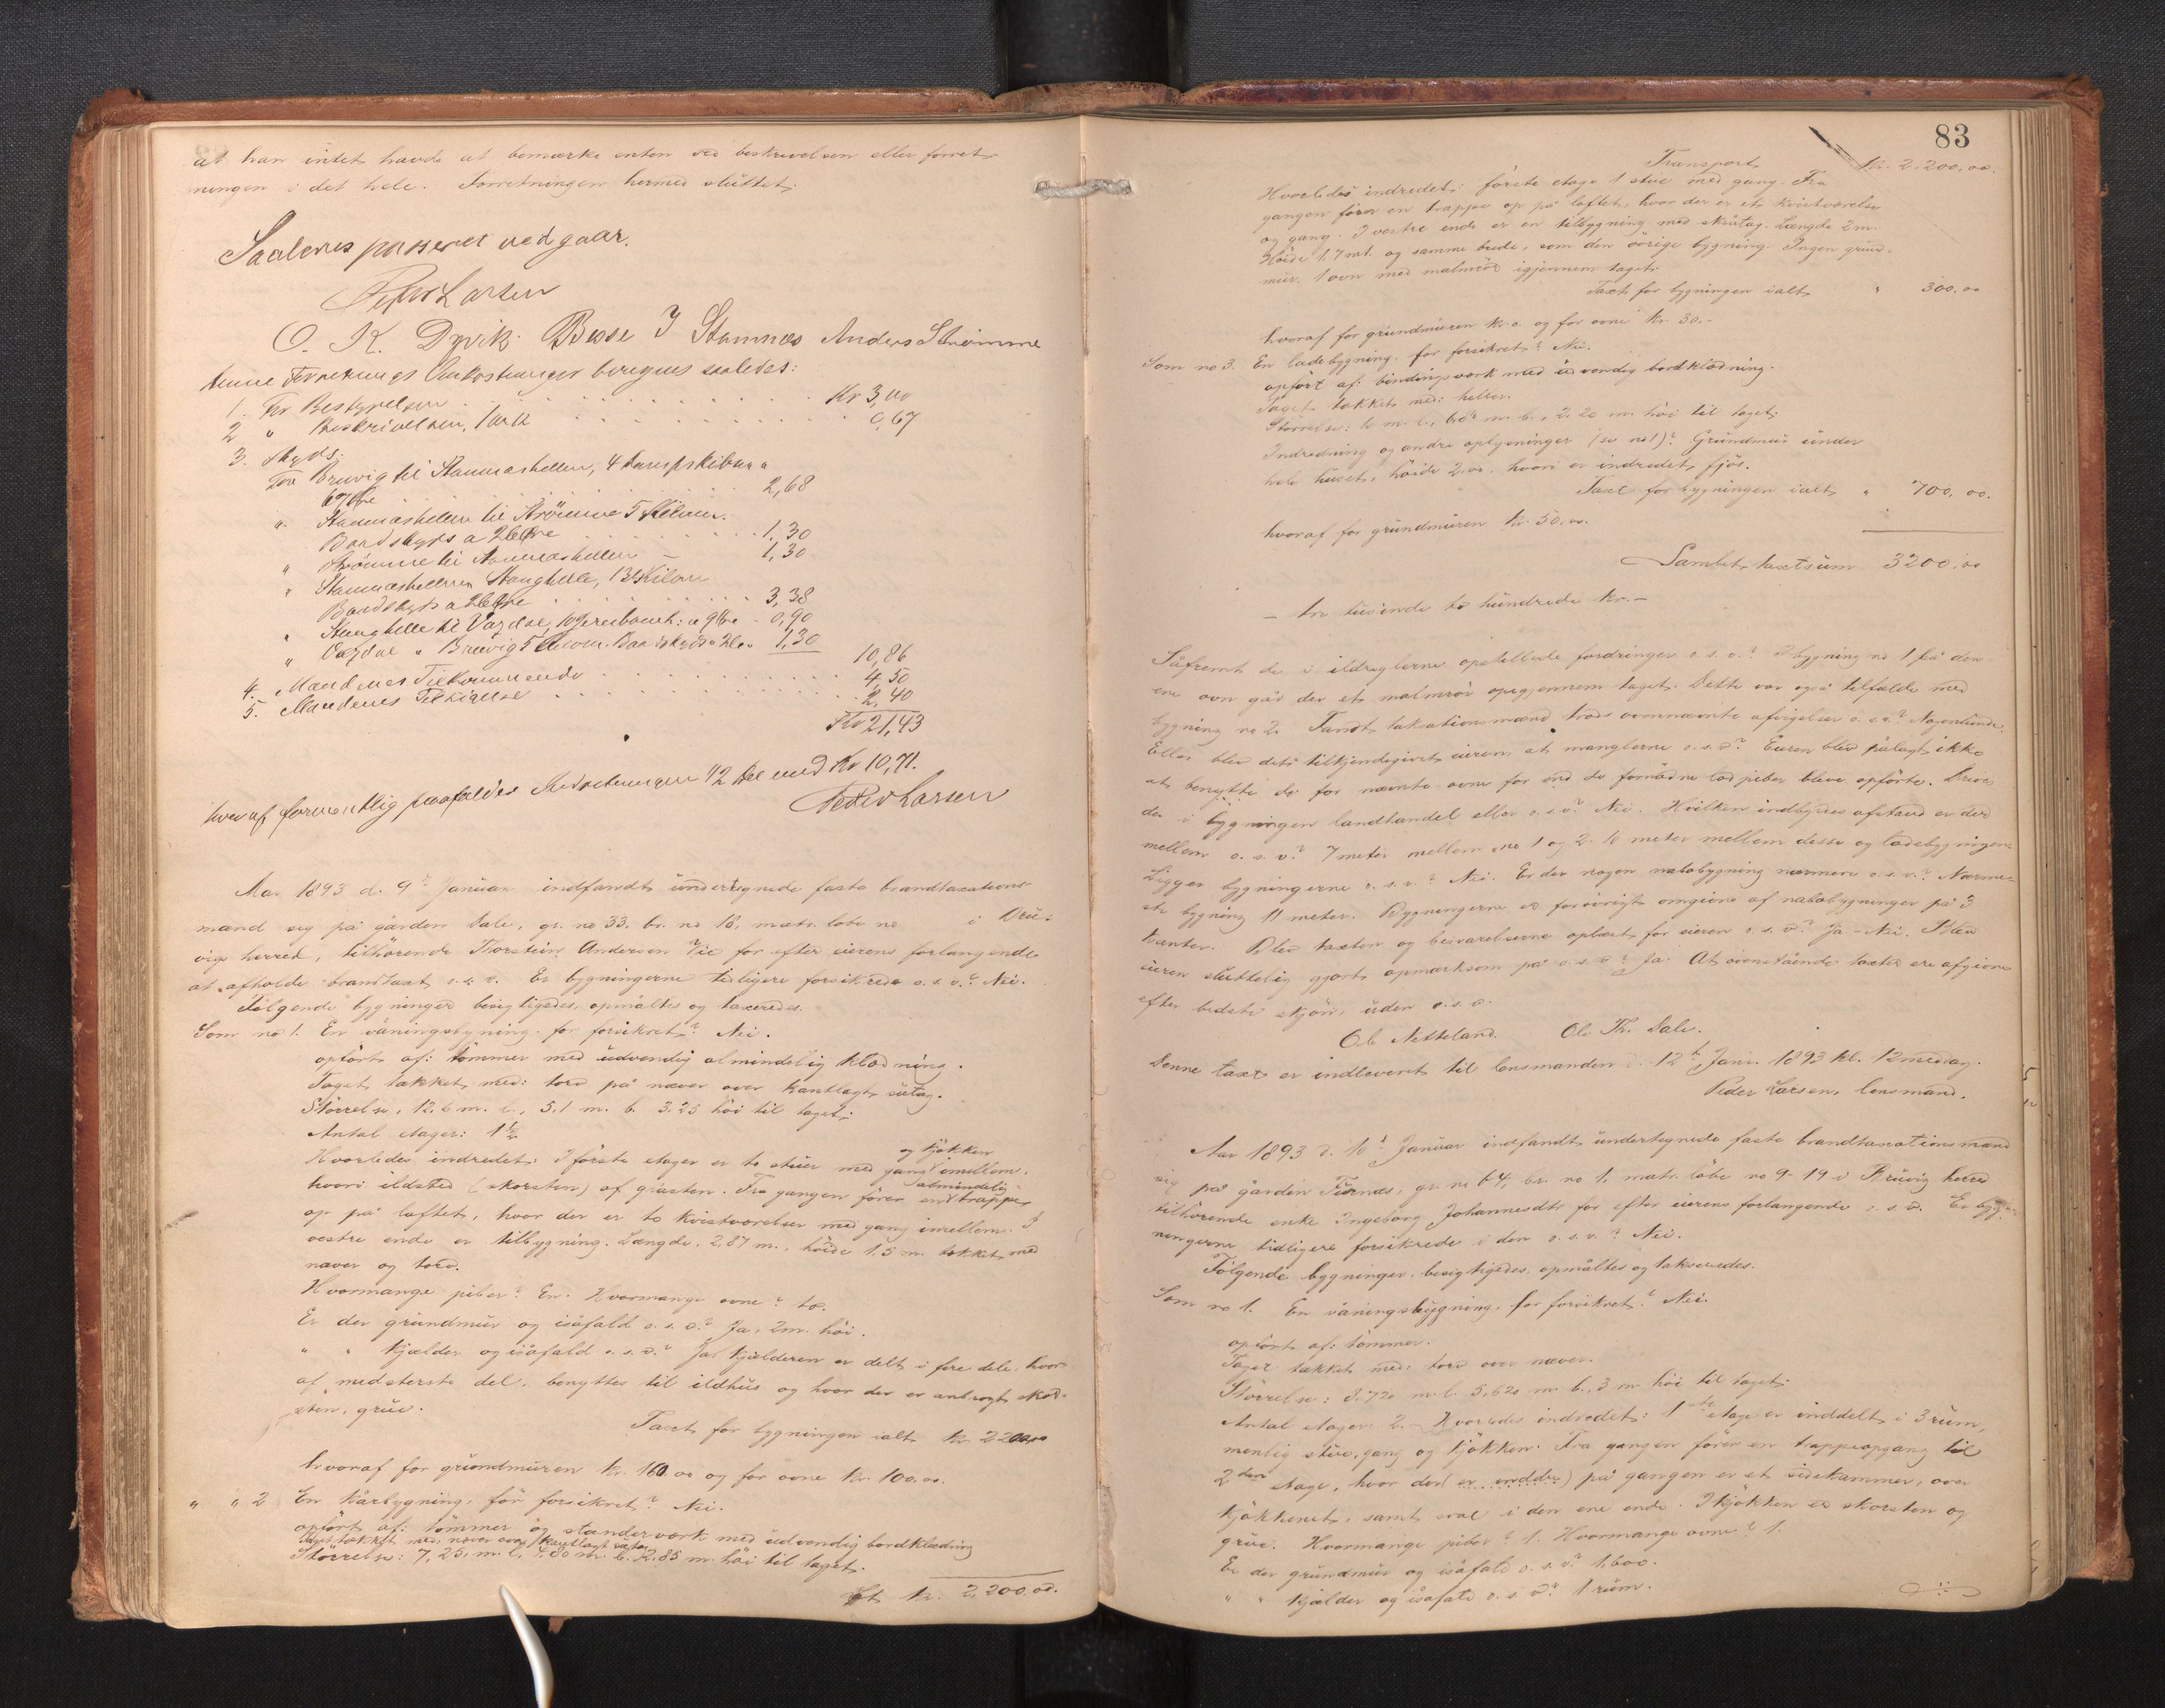 at han intet havde at bemærke enten ved beskrivelsen eller forret-
ningen i det hele. Forretningen hermed sluttet.
Saaledes passeret vedgaar.
Peder Larsen
O. K. Dyvik. Besse I Stamnæs Anders Strømme
Denne Forretnings Omkostninger beregnes saaledes:
1. For Bestyrelsen Kr 3,00
2 " Beskrivelsen, 1 ark 0,67
3. Skyds:
Fra Bruvig til Stamneshellen, 4 a
67 Øre 2,68
" Stamneshellen til Strömme 5 Kilom.
Baadskyds a 26 Øre 1,30
" Strömme til Stamneshellen 1,30
" Stamneshellen Stanghelle, 13 Kilom
Baadskyds a 26 Øre 3,38
" Stanghelle til Vagdal, 10 a 9 Øre 0,90
" Vagdal " Bruvig 5 Kilom. Baadskyds a 26 1,30
10,86
4. Mændenes Tilkommende 4,50
5. Mændenes Tilsigelse 2,40
Kr 21,43
hvoraf formentlig paafaldes 1/2 Del med Kr 10,71.
Peder Larsen
Aar 1893 d. 9de Januar indfandt undertegnede faste brandtaxations-
mænd sig på gården Dale, gr. no 33, br. no 16, matr. løbe no i Bru-
vigs herred, tilhørende Thorstein Andersen for efter eierens forlangende
at afholde brandtaxt o.s.v. Er bygningerne tidligere forsikrede o.s.v.? Nei.
Følgende bygninger besigtigedes, opmåltes og taxeredes.
Som no 1. En våningsbygning. før forsikret? Nei.
opført af: tømmer med udvendig almindelig klædning.
Taget tækket med: torv på næver over kantlagt sutag.
Størrelse, 12.6 m. l., 5.1 m. b. 3.25 høi til taget.
Antal etager: 1½
og kjøkken
Hvorledes indredet: I første etager er to stuer med gang imellem.
almindelig
hvori ildsted (skorsten) af gråsten. Fra gangen fører en trappe
op på loftet, hvor der er to kvistværelser med gang imellem. I
vestre ende er tilbygning. Længde. 2,87 m., høide 1.5 m. tækket med
næver og torv.
Hvormange piber? En. Hvormange ovne? to.
Er der grundmur og isåfald o.s.v.? Ja, 2 m. høi.
" " kjælder og isåfald o.s.v.? Ja, kjælderen er delt i fire dele, hvor-
af medsterste del, benyttes til ildhus og hvor der er anbragt skor-
sten, grue.
Taxt for bygningen ialt kr. 2200,00
hvoraf for grundmuren kr. 160.00 og for ovne kr. 100.00.
" " 2 En kårbygning, før forsikret? Nei.
opført af: tømmer og standerværk med udvendig bordklædning
Taget tækket med, næver over kantlagt sutag
Størrelse: 7,25, m. l. 4.80 m. b. 2.85 m. høi til taget.
kr. 2,200.00.
83
Transport kr. 2,200,00.
Hvorledes indredet: første etage 1 stue med gang. Fra
gangen fører en trappe op på loftet, hvor der er et kvistværelse
og gang. I vestre ende er en tilbygning med skråtag. Længde 2 m.
Høide 1.7 mt. og samme brede, som den øvrige bygning. Ingen grund-
mur. 1 ovn med malmrør igjennem taget.
Taxt for bygningen ialt " 300.00
hvoraf for grundmuren kr. o. og for ovne kr. 30.-
Som no 3. En ladebygning. før forsikret? Nei.
opført af: bindingsværk med udvendig bordklædning.
Taget tækket med: heller.
Størrelse: m. l., m. b., 2.20 m. høi til taget.
Indredning og andre oplysninger (se no 1)? Grundmur under
hele huset, høide 2.00, hvori er indredet fjøs.
Taxt for bygningen ialt " 700,00.
hvoraf for grundmuren kr. 50.00.
Samlet taxtsum 3200.00
- tre tusinde to hundrede kr. -
Såfremt de i ildreglerne opstillede fordringer o.s.v.? I bygning no 1 på den
ene ovn går der et malmrør opigjennem taget. Dette var også tilfælde med
bygning no 2. Fandt taksationsmænd trods ovennævnte afvigelser o.s.v.? Nogenlunde.
Eller blev det tilkjendegivet eieren at manglerne o.s.v.? Eieren blev pålagt ikke
at benytte de før nævnte ovne før end de fornødne lod piber bleve opførte. Drives
der i bygningen landhandel eller o.s.v.? Nei. Hvilken indbyrdes afstand er der
mellem o.s.v.? 7 meter mellem no 1 og 2. 10 meter mellem disse og ladebygningen.
Ligger bygningerne o.s.v.? Nei. Er der nogen nabobygning nærmere o.s.v.? Nærme-
ste bygning 11 meter. Bygningerne er forøvrigt omgivne af nabobygninger på 3
kanter. Blev taxten og besvarelserne oplæst for eieren o.s.v.? Ja - Nei. Blev
eieren sluttelig gjort opmærksom på o.s.v.? Ja. At ovenstående taxter ere afgivne
efter bedste skjøn, uden o.s.v.
Ole Nesteland. Ole Th. Dale.
Denne taxt er indleveret til lensmanden d. 12te Janr. 1893 kl. 12 middag.
Peder Larsen, lensmand.
Aar 1893 d. 10de Januar indfandt undertegnede faste brandtaxationsmænd
sig på gården Furnæs, gr. no 64, br. no 1, matr. løbe no 9-19 i Bruvig herred
tilhørende enke Ingeborg Johannesdtr for efter eierens forlangende o.s.v. Er byg-
ningerne tidligere forsikrede i den o.s.v.? Nei.
Følgende bygninger, besigtigedes, opmåltes og takseredes.
Som no 1. En våningsbygning, før forsikret? Nei.
opført af: tømmer.
Taget tækket med: torv over næver.
Størrelse: 8.720 m. l. 5,620 m. b., 3 m høi til taget.
Antal etager 2. Hvorledes indredet: 1ste etage er inddelt i 3 rum,
nemlig stue, gang og kjøkken. Fra gangen fører en trappeopgang til
2den etage, hvor der (er inddelt) på gangen er et sidekammer, over
kjøkkenet, samt sval i den ene ende. I kjøkken er skorsten og
grue. Hvormange piber? 1. Hvormange ovne? 1.
Er der grundmur og isåfald o.s.v.? 1,600.
" " kjælder og isåfald o.s.v.? 1 rum.